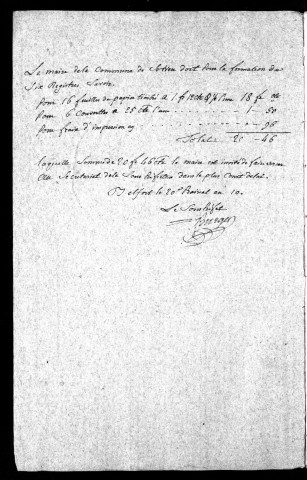 Le maire de la Commune de doit pour la formation des
Six Registres, Savoir.
pour 16 feuilles de papier timbré à 1 f 12 cts ½ l'une 18 fr cts
pour 6 Couvertes à 25 cts l'une . . . . . . . 1 — 50
pour fraix d'impression . . . . . . . . . " — 96
Total. 20 — 46
laquelle Somme de 20 fr 46 cts le maire est invité de faire verser
au Secrétariat de la Sous préfecture dans le plus court délai.
Belfort le 20e Prairial an 10.
Le Sous préfet